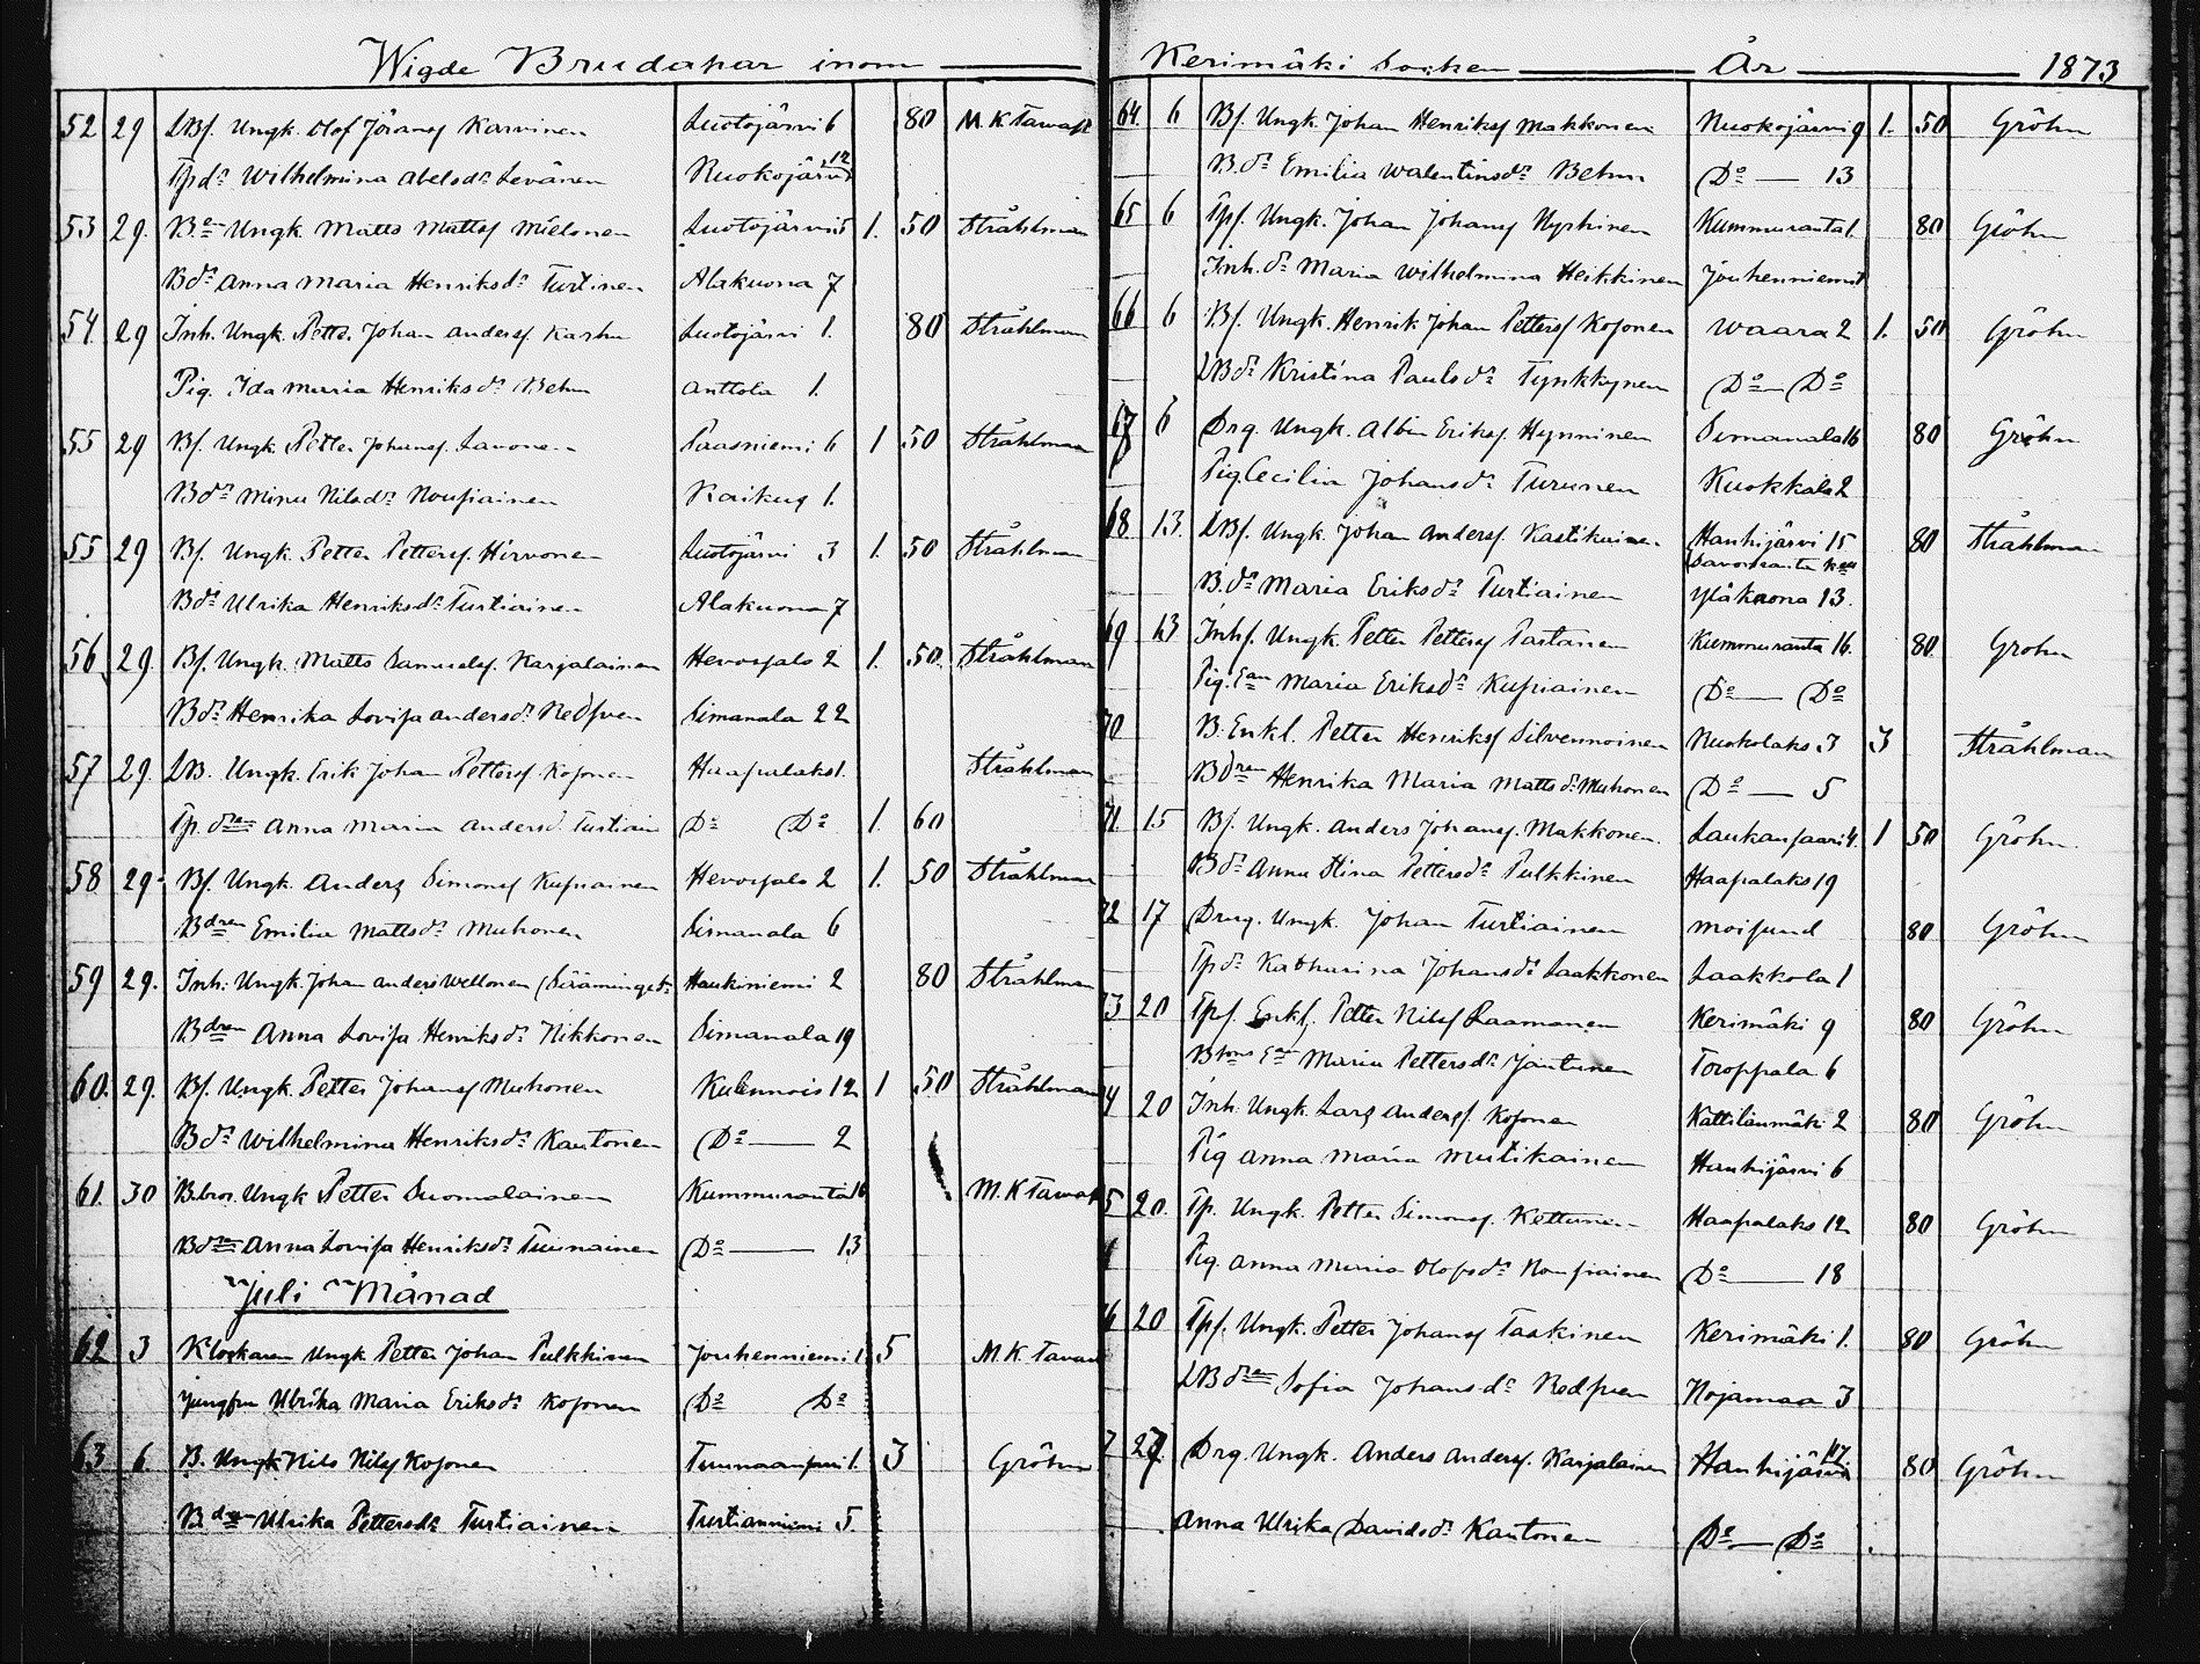 Wigde Brudapar inom
52 29 LBs. Ungk. Olof Jöranss Karvinen Luotojärvi 6 80 M. K. Tawast
Tpdr Wilhelmina Abelsdr Levänen Ruokojärvi 12
53 29. B. Ungk. Matts Mattss Mielonen Luotojärvi 5 1. 50 Stråhlman
Bdr Anna Maria Henriksdr Turtinen Alakuona 7
54. 29 Inh. Ungk. Petts. Johan Anderss. Karhu Luotojärvi 1. 80 Stråhlman
Pig. Ida Maria Henriksdr Behm Anttola 1.
55 29 Bs. Ungk. Petter Johanss. Savonen Paasniemi 6 1 50 Stråhlman
Bdr Minu Nilsdr Nousiainen Raikuu 1.
55 29 Bs. Ungk. Petter Petterss. Hirvonen Luotojärvi 3 1. 50 Stråhlman
Bdr Ulrika Henriksdr Turtiainen Alakuona 7
56 29 Bs. Ungk. Matts Samuelss. Karjalainen Hevossalo 2 1. 50. Stråhlman
Bdr Henrika Lovisa Andersdr Redsven Simanala 22
57 29. LB. Ungk. Erik Johan Petterss Kosonen Haapalaks 1. Stråhlman
Tp. dren Anna Maria Andersd. Turtiain Do Do 1. 60
58 29 Bs. Ungk. Anders Simonss Kupiainen Hevossalo 2 1. 50 Stråhlman
Bdren Emilia Mattsdr Muhonen Simanala 6
59 29. Inh: Ungk. Johan Anders Wellonen (Sääminge Haukiniemi 2 80 Stråhlman
Bdren Anna Lovisa Henriksdr Nikkonen Simanala 19
60. 29. Bs. Ungk. Petter Johanss Muhonen Kulennois 12 1 50 Stråhlman
Bdr Wilhelmina Henriksdr Kautonen Do 2
61. 30 B.bror. Ungk Petter Suomalainen Kummuranta 16 M. K Tawast
Bdren Anna Lovisa Henriksdr Tuunainen Do 13
Juli Månad
62 3 Klockaren Ungk Petter Johan Pulkkinen Jouhenniemi 1. 5 M. K. Tavast
Jungfru Ulrika Maria Eriksdr Kosonen Do Do
63 6. B. Ungk Nils Nilss Kosonen Tuunaansaari 1. 3 Gröhn
Bdren Ulrika Pettersdr Turtiainen Turtianniemi 5.
Kerimäki Socken År 1873
64. 6 Bs. Ungk. Johan Henrikss Makkonen Ruokojärvi 9 1. 50 Gröhn
B. dr Emilia Walentinsdr Behm Do 13
65 6 Tps. Ungk. Johan Johanss Nyrhinen Kummuranta 1. 80 Gröhn
Inh. dr Maria Wilhelmina Heikkinen Jouhenniemi 1
66 6 Bs. Ungk. Henrik Johan Petterss Kosonen Waara 2 1. 50 Gröhn
LBdr Kristina Paulsdr Tynkkynen Do Do
67 6 Drg. Ungk. Albin Erikss. Hynninen Simanala 16 80 Gröhn
Pig. Cecilia Johansdr Turunen Ruokkala 2
68 13. LBs. Ungk. Johan Anderss. Kastikainen Hanhijärvi 15 80 Stråhlman
(Savonranta
B. dr Maria Eriksdr Turtiainen Yläkuona 13.
69 13 Inhs. Ungk. Petter Petterss Partanen Kummuranta 16. 80. Gröhn
Pig. Ean Maria Eriksdr Kupiainen Do Do
70 B. Enkl. Petter Henrikss Silvennoinen Ruokolaks 3 3 Stråhlman
Bdren Henrika Maria Mattsdr Muhonen Do 5
71. 15 Bs. Ungk. Anders Johanss. Makkonen Laukansaari 4. 1 50 Gröhn.
Bdr Anna Stina Pettersdr Pulkkinen Haapalaks 19
72 17 Dreng. Ungk. Johan Turtiainen Moisund 80 Gröhn
Tpdr Katharina Johansdr Laakkonen Laakkola 1
73 20 Tps. Enkl. Petter Nilss Laamanen Kerimäki 9 80 Gröhn
Btons Ean Maria Pettersdr Jantunen Toroppala 6
4 20 Inh: Ungk. Lars Anderss. Kosonen Kattilanmäki 2 80 Gröhn
Pig Anna Maria Mutikainen Hanhijärvi 6
5 20. Tp. Ungk. Petter Simonss. Kettunen Haapalaks 12 80 Gröhn
Pig. Anna Maria Olofsdr Nousiainen Do 18
6 20 Tps. Ungk. Petter Johanss Taskinen Kerimäki 1. 80 Gröhn
LBdren Sofia Johansdr Redsven Nojamaa 3
7 27. Drg. Ungk. Anders Anderss. Karjalainen Hanhijärvi 17 80 Gröhn
Anna Ulrika Davidsdr Kautonen Do Do